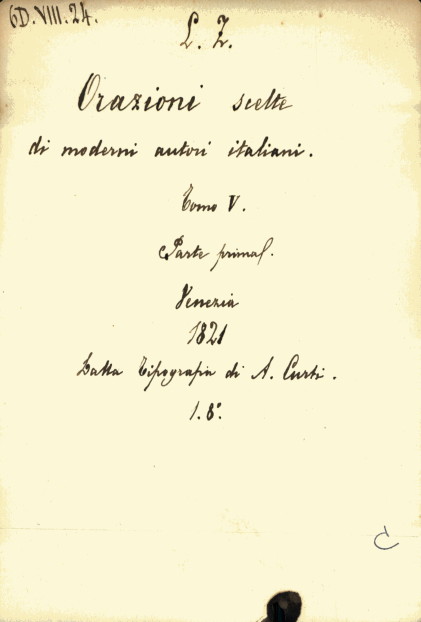 6D.VIII.24.
L. Z.
Orazioni scelte
di moderni autori italiani.
Tomo V.
Parte prima.
Venezia
1821
Dalla Tipografia di A. Curti.
1. 8°.
C